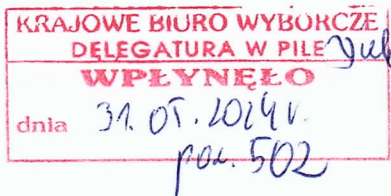 KRAJOWE BIURO WYBORCZE
DELEGATURA W PILE
WPŁYNĘŁO
dnia 31.05.2024 r.
poz. 502